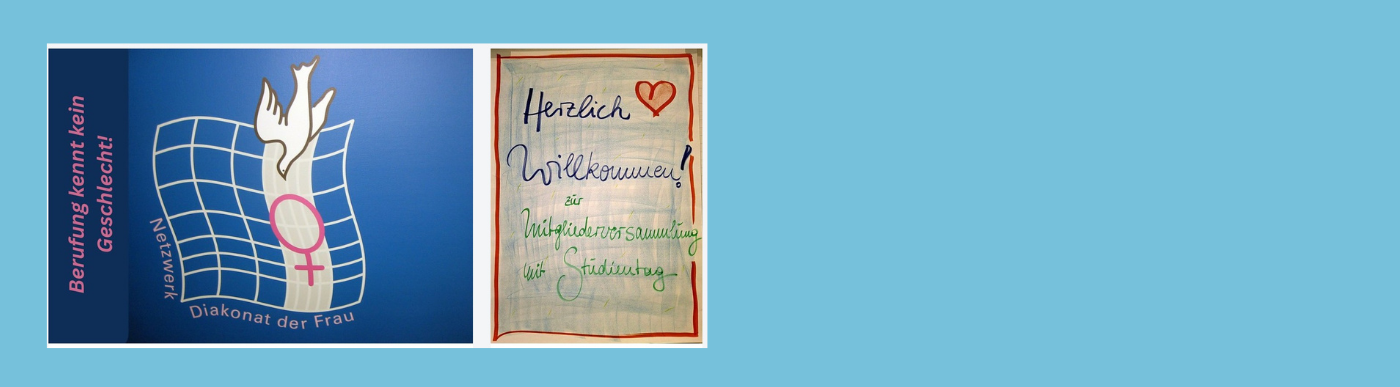 Berufung kennt kein
Geschlecht!
Netzwerk
Diakonat der Frau
Herzlich
Willkommen!
zur
Mitgliederversammlung
mit Studientag